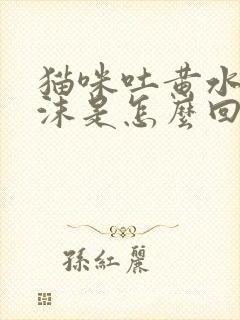 猫咪吐黄水
沫是怎麼回
孫紅麗